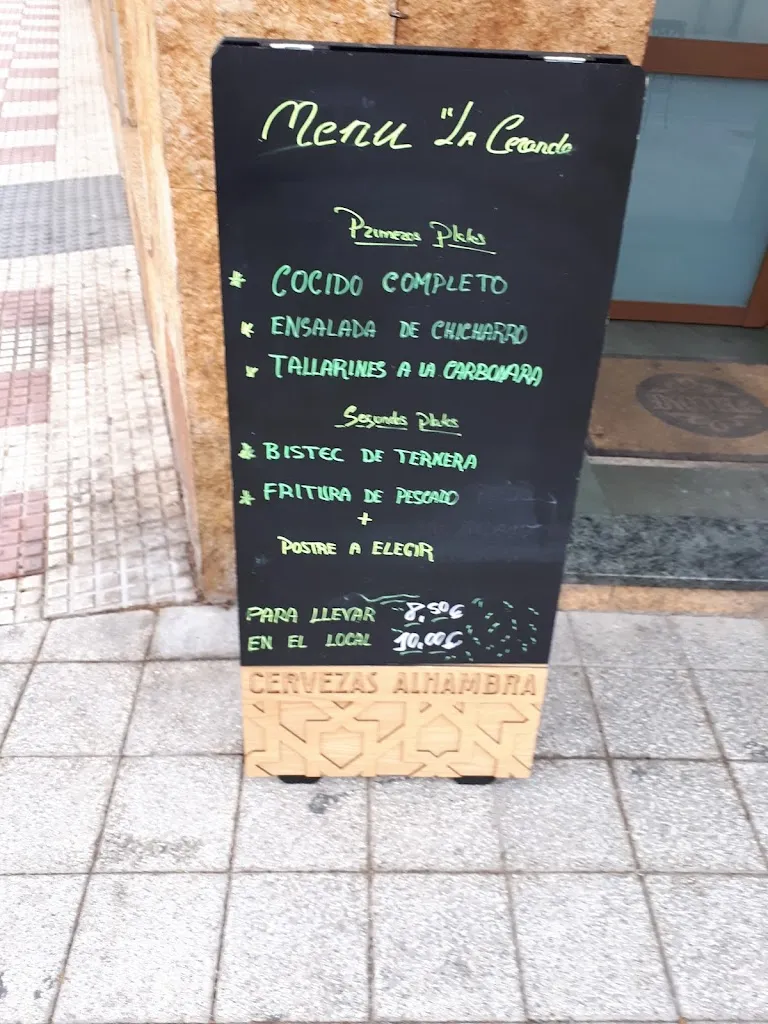 Menu "La
Primeros Platos
* COCIDO COMPLETO
* ENSALADA DE CHICHARRO
* TALLARINES A LA CARBONARA
Segundos Platos
* BISTEC DE TERNERA
* FRITURA DE PESCADO
+
POSTRE A ELEGIR
PARA LLEVAR 8,50€
EN EL LOCAL 10,00€
CERVEZAS ALHAMBRA